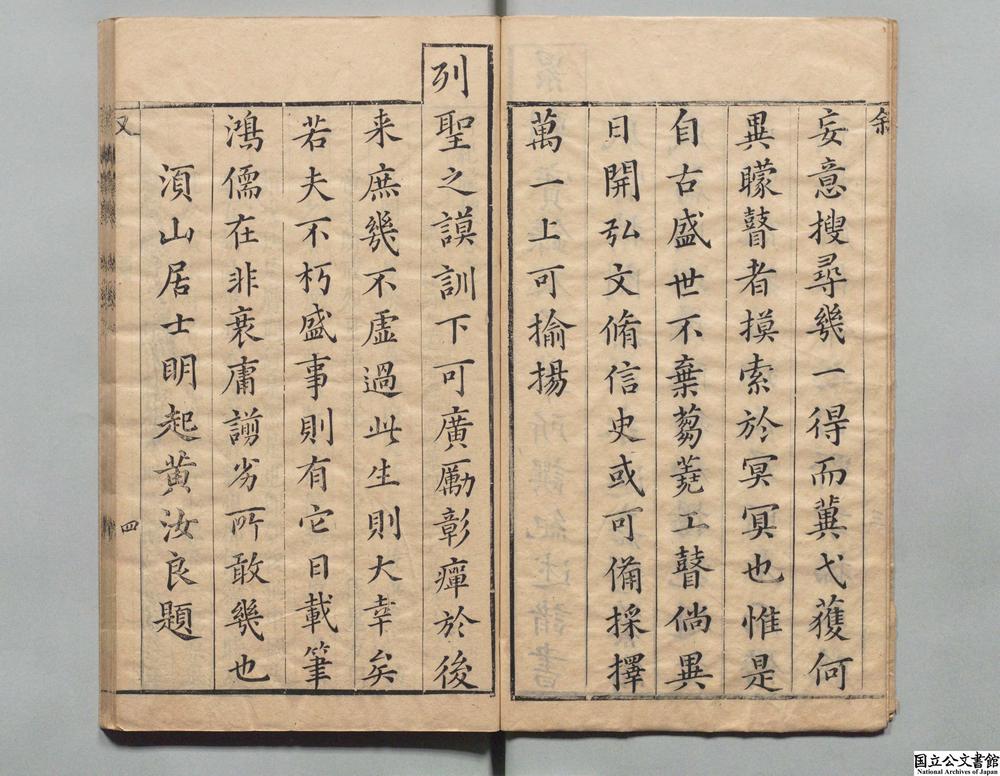 叙
妄意搜尋幾一得而冀弋獲何
異矇瞽者摸索於冥冥也惟是
自古盛世不棄芻蕘工瞽倘異
日開弘文脩信史或可備採擇
萬一上可揄揚
列聖之謨訓下可廣勵彰癉於後
来庶幾不虛過此生則大幸矣
若夫不朽盛事則有它日載筆
鴻儒在非衰庸謭劣所敢幾也
湏山居士明起黄汝良題
四
国立公文書館
National Archives of Japan